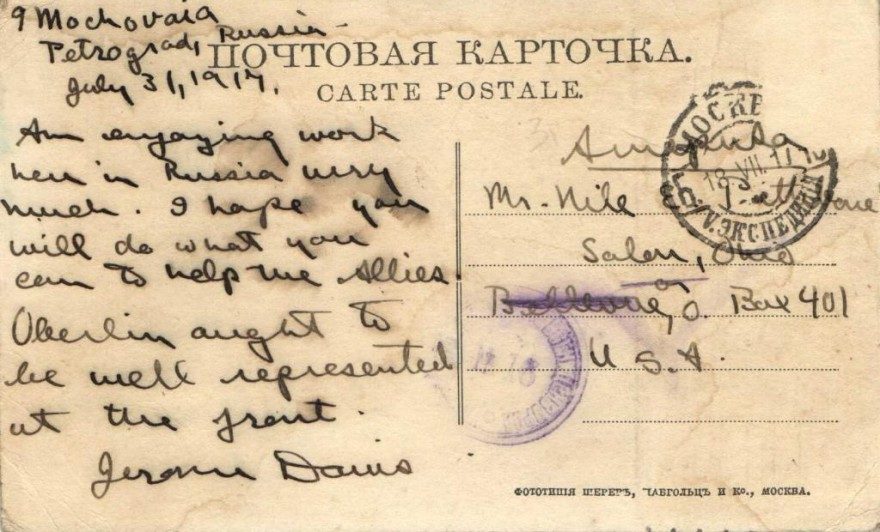 9 Mochovaia
Petrograd, Russia
July 31, 1917.
ПОЧТОВАЯ КАРТОЧКА.
CARTE POSTALE.
Am enjoying work
here in Russia very
much. I hope you
will do what you
can to help the Allies
Oberlin aught to
be well represented
at the front.
Jerome Davis
America
Mr. Nile
Salem, Ohio
or
Bellevue, O. Box 401
U S A.
МОСКВА
18 VII 17
ЭКСПЕДИЦІЯ
ФОТОТИПІЯ ШЕРЕРЪ, НАБГОЛЬЦЪ И Ко., МОСКВА.